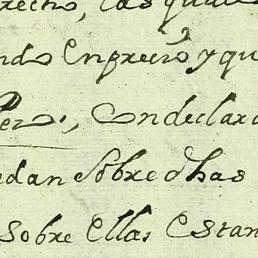 recho, las qua
ndo Enprecio y qu
Per, Con declara
edan Sobre dhas
Sobre Ellas Estan